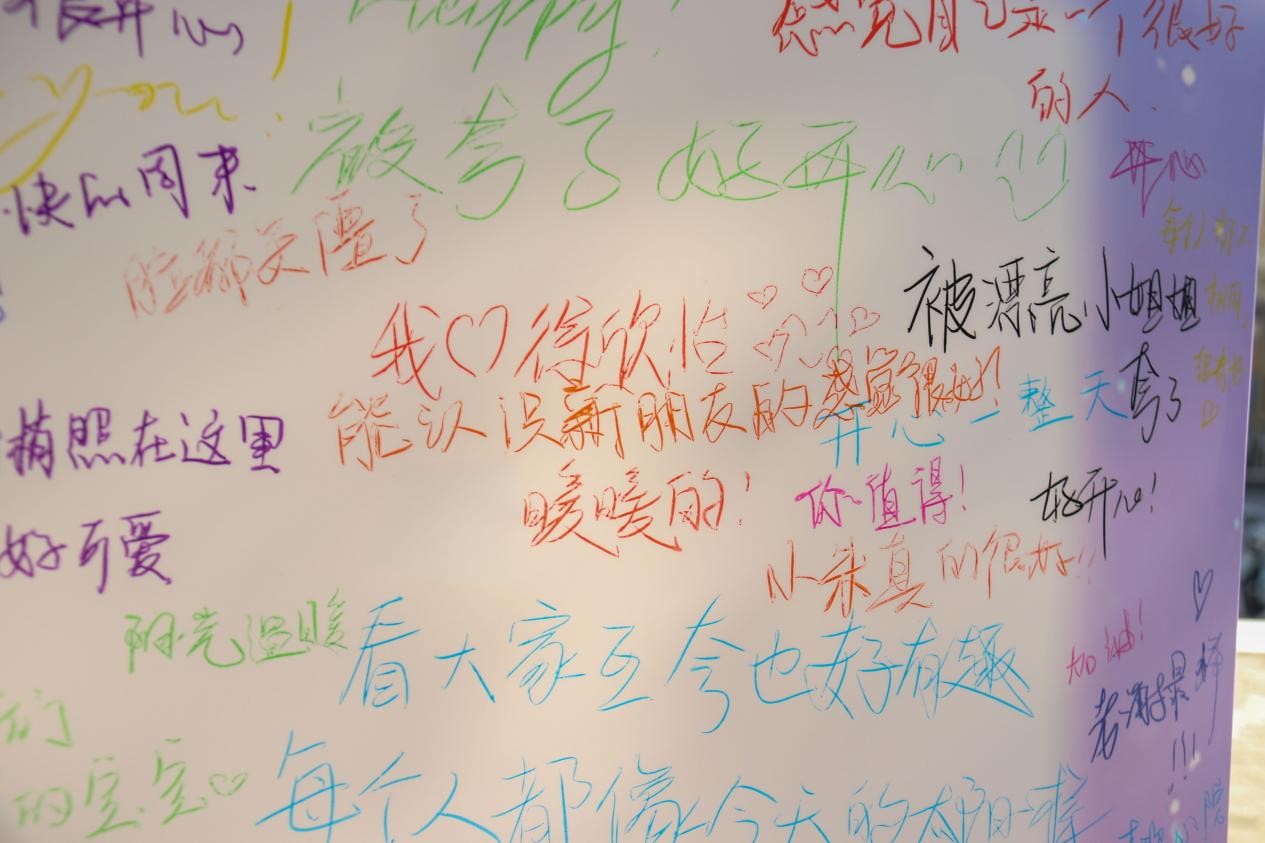 很开心
Happy!
感觉自己是一个很好
的人.
You
快的周末
被夸了好开心
开心
脸都笑僵了
被漂亮小姐姐
夸了
好开心!
我♡徐欣怡
能认识新朋友的感觉很好!
开心一整天
拍照在这里
暖暖的!
你值得!
好可爱
小朱真的很好!!
阳光温暖
看大家互夸也好有趣
加油!
们
的宝宝♡
每个人都像今天的太阳一样